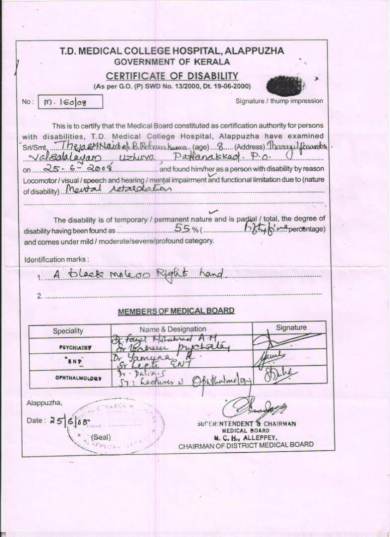 T.D. MEDICAL COLLEGE HOSPITAL, ALAPPUZHA
GOVERNMENT OF KERALA
CERTIFICATE OF DISABILITY
(As per G.O. (P) SWD No. 13/2000, Dt. 19-06-2000)
No : M. 160/08
Signature / thump impression
This is to certify that the Medical Board constituted as certification authority for persons
with disabilities, T.D. Medical College Hospital, Alappuzha have examined
Sri/Smt. (age) 8 (Address)
Pattanakkad. P.O.
on 25-6-2008 and found him/her as a person with disability by reason
Locomotor / visual / speech and hearing / mental impairment and functional limitation due to (nature
of disability) Mental retardation
The disability is of temporary / permanent nature and is partial / total, the degree of
disability having been found as 55 % ( fifty five percentage)
and comes under mild / moderate/severe/profound category.
Identification marks :
1. A black mole on Right hand.
2.
MEMBERS OF MEDICAL BOARD
Speciality Name & Designation Signature
PSYCHIATRY
Dr
OPHTHALMOLOGY
Ophthalmology
Alappuzha,
Date : 25/6/08
(Seal)
SUPERINTENDENT & CHAIRMAN
MEDICAL BOARD
M. C. H., ALLEPPEY.
CHAIRMAN OF DISTRICT MEDICAL BOARD